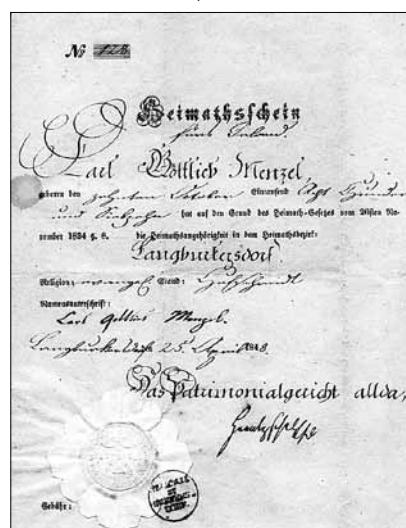 № 128
Heimathsschein
fürs Inland.
Carl Gottlieb Menzel
geboren den zehnten October Eintausend Acht Hundert
und Siebzehn hat auf den Grund des Heimath-Gesetzes vom 26sten No-
vember 1834 §. 8. die Heimathsangehörigkeit in dem Heimathsbezirk:
Langburkersdorf
Religion: evangel. Stand:
Namensunterschrift:
Carl Gottlieb Menzel.
Langburkersdorf 25. April 1848.
Das Patrimonialgericht allda,
Gebühr: